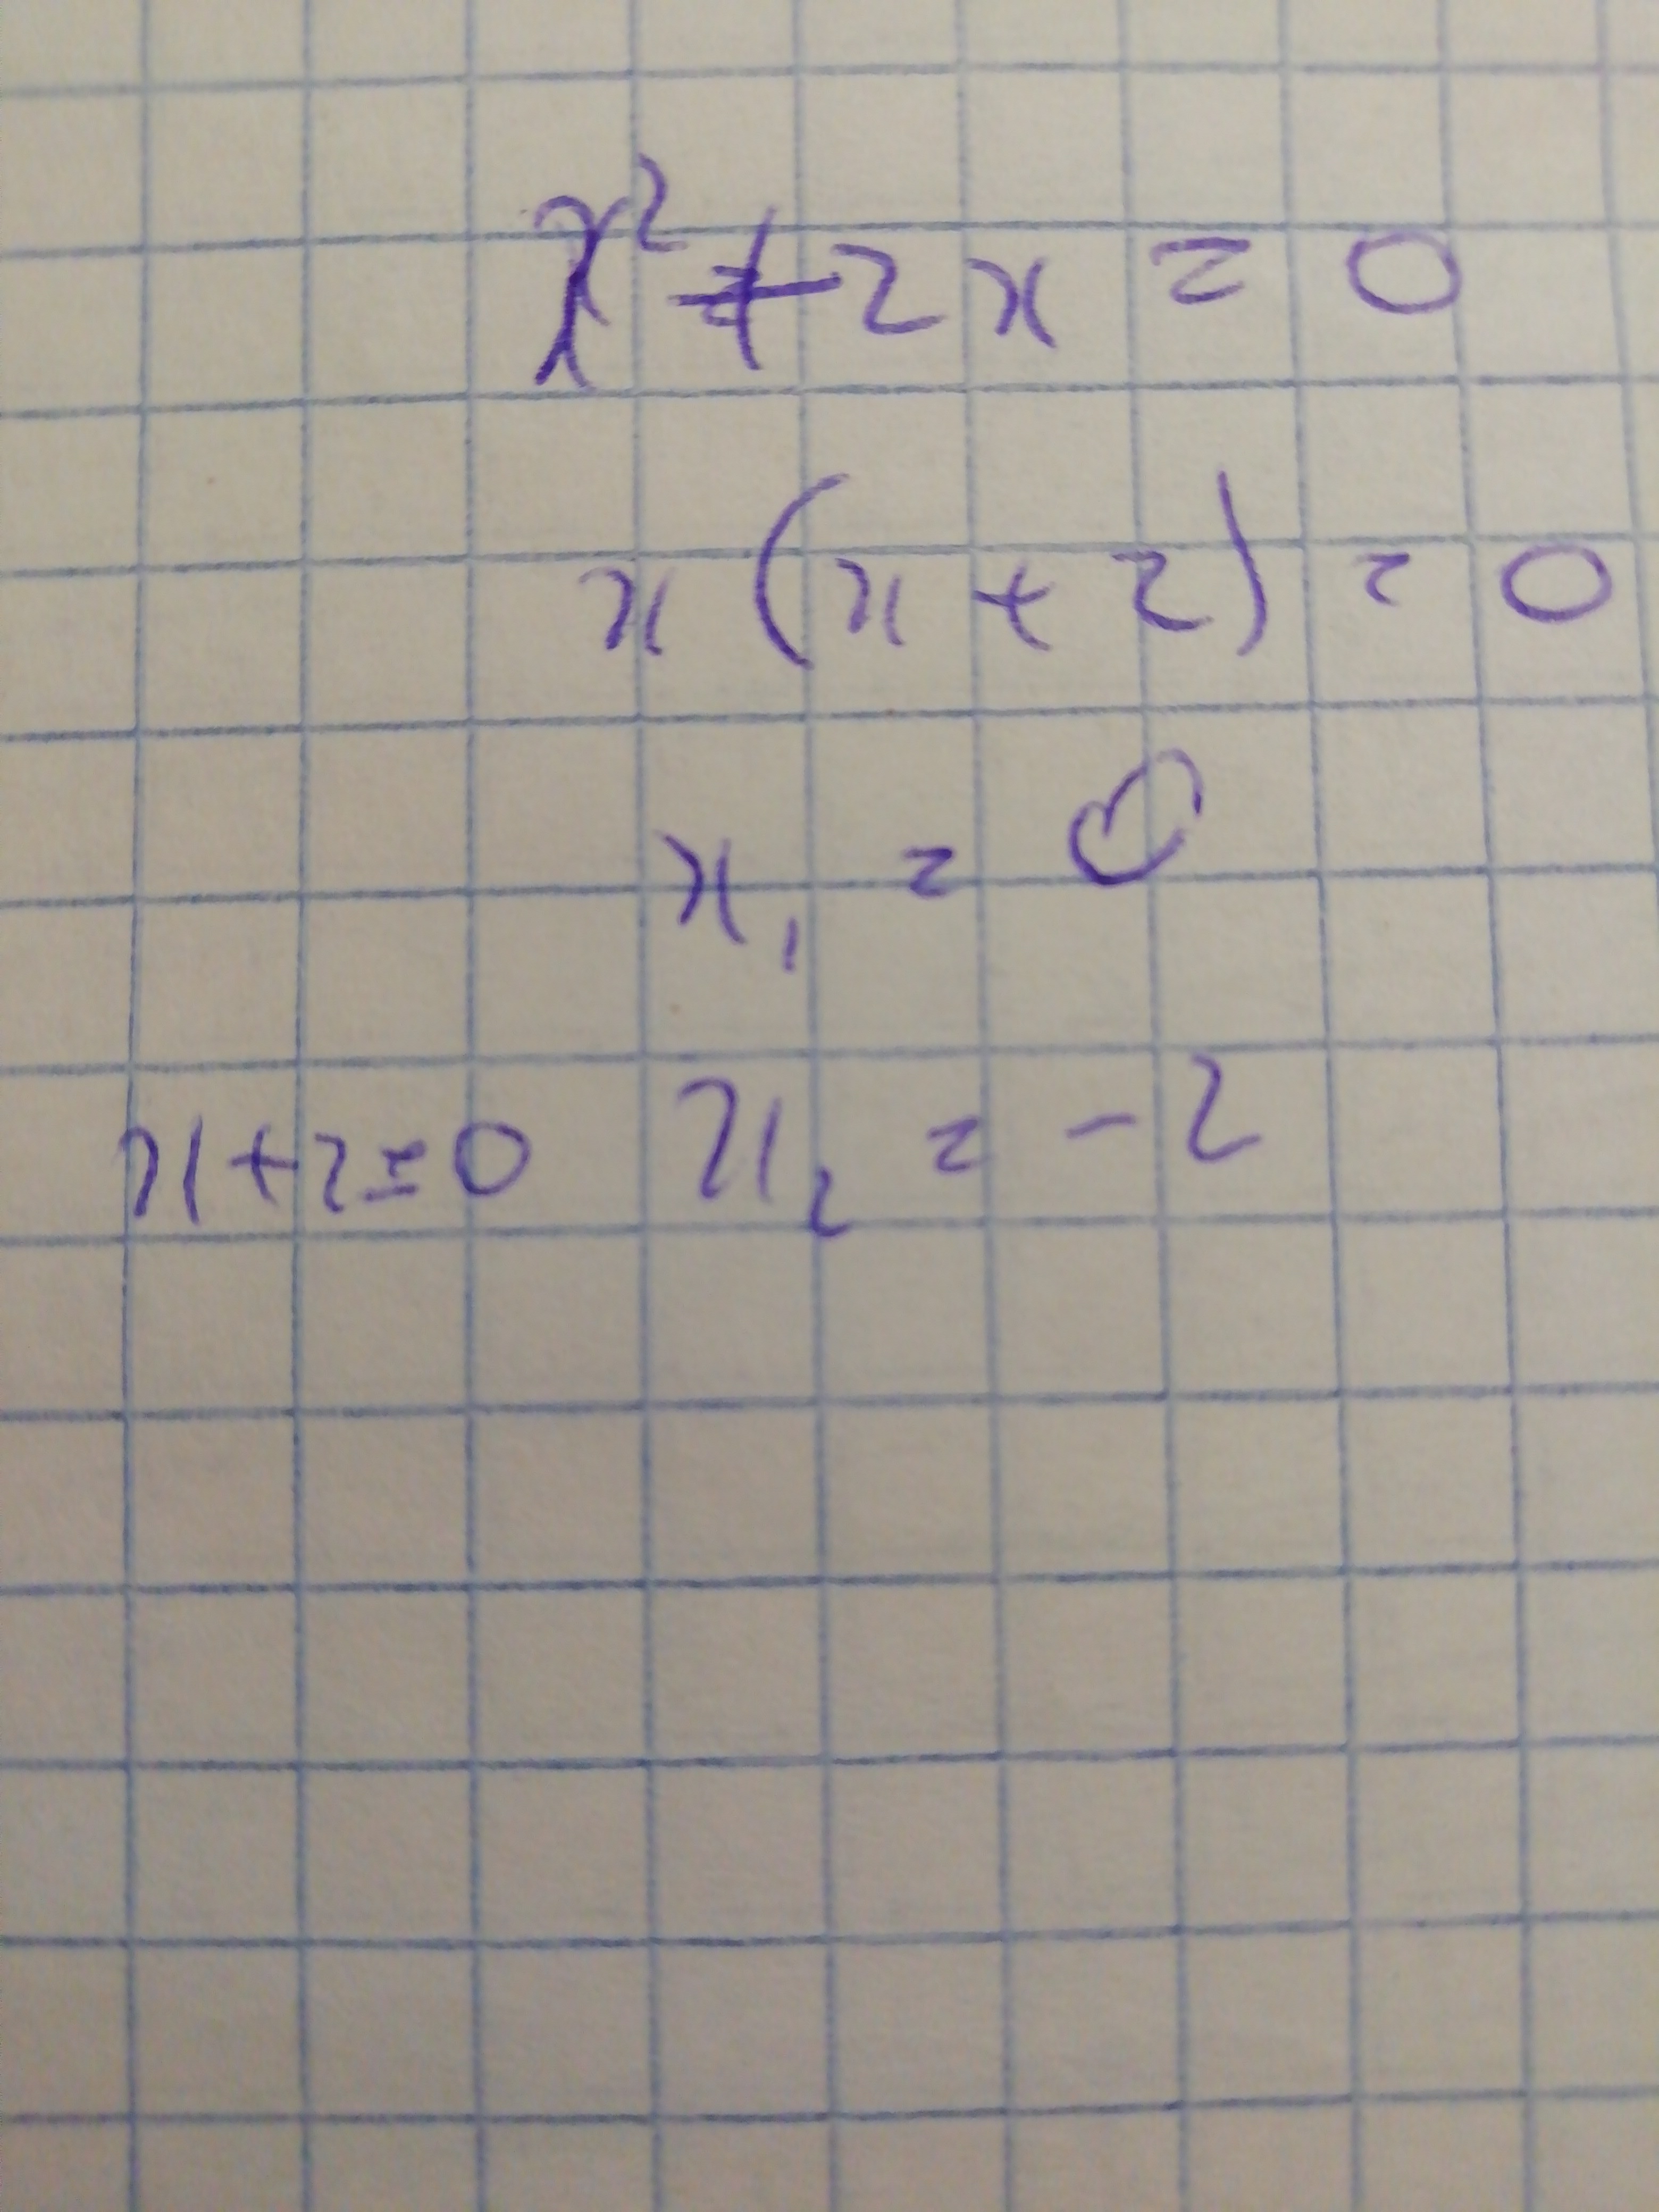 x² + 2x = 0
x (x + 2) = 0
x₁ = 0
x + 2 = 0 x₂ = - 2